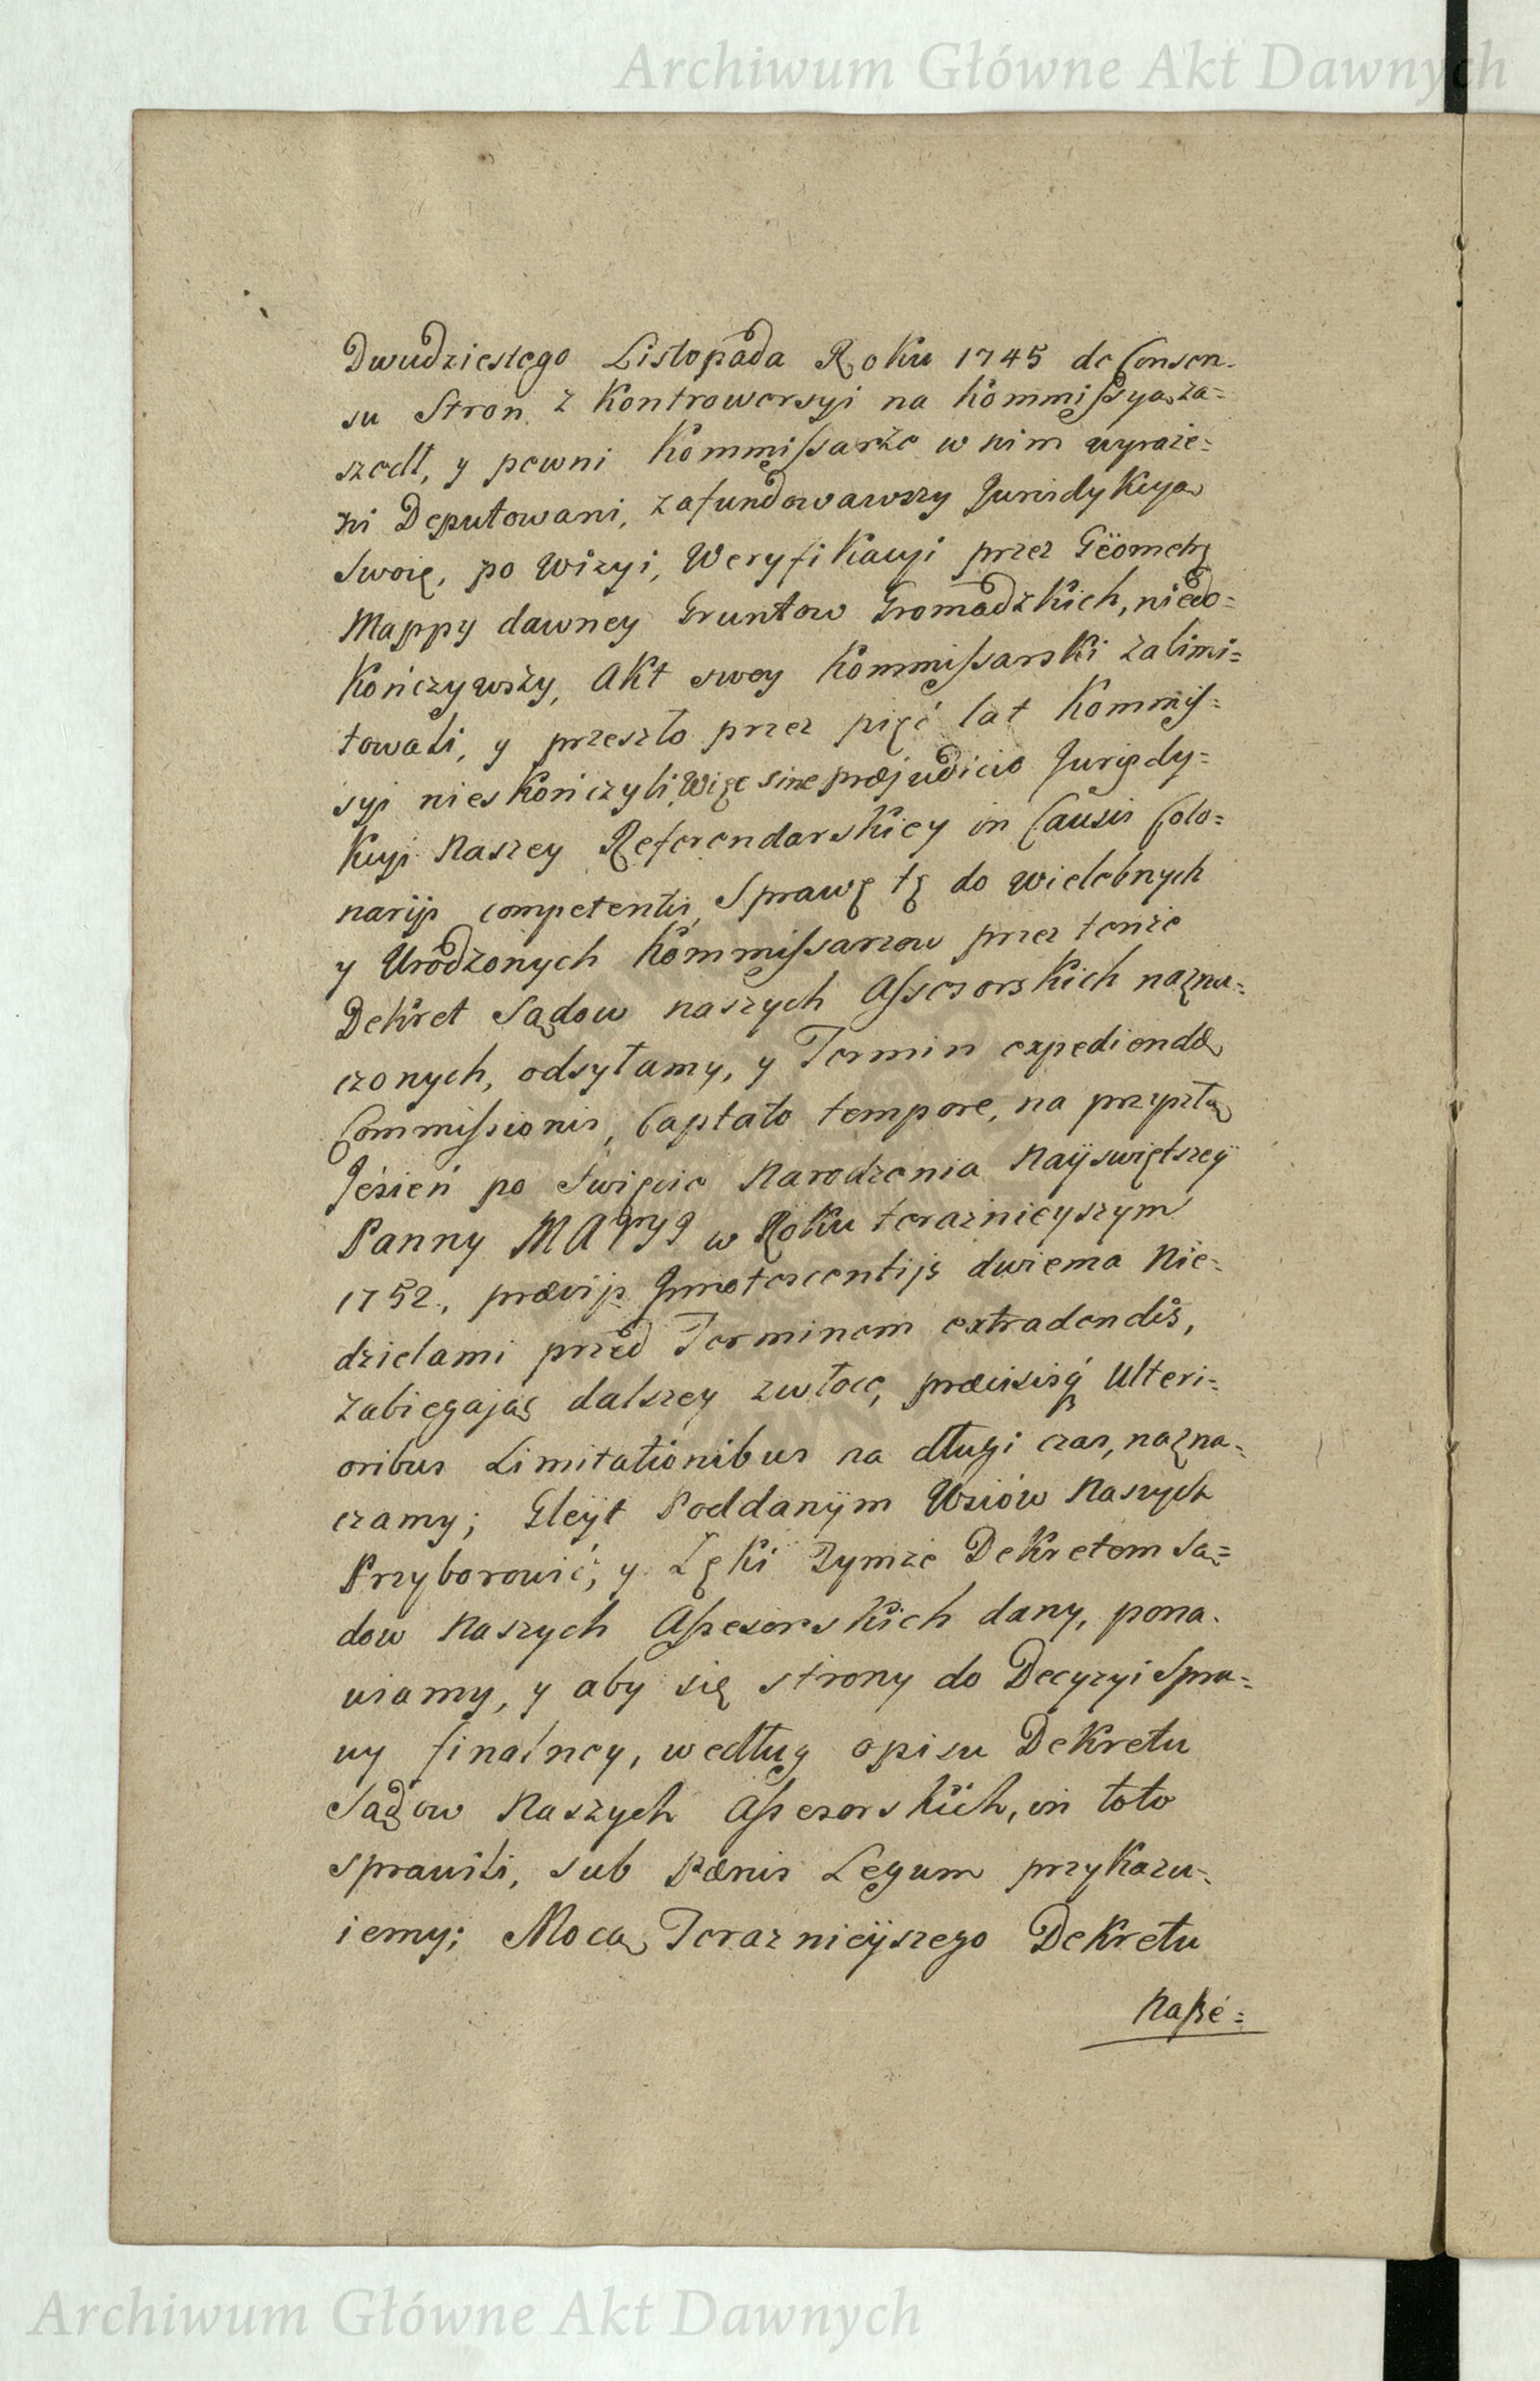 Archiwum Główne Akt Dawnych
Dwudziestego Listopada Roku 1745 de Consen-
su Stron z Kontrowersyi na Kommissyą za=
szedł, y pewni Kommissarze w nim wyraże=
ni Deputowani, zafundowawszy Jurisdykcyą
Swoię, po Wizyi, Weryfikacyi przez Gëometrę
Mappy dawney Gruntow Gromadzkich, niedo=
Kończywszy, Akt swey Kommissarski zalimi=
towali, y przeszło przez pięć lat Kommis=
syi nieskończyli, Więc sine præjudicio Jurisdy=
Kcyi Naszey Referendarskiey in Causis Colo=
narijs competentis, Sprawę tę do Wielebnych
y Urodzonych Kommissarzow przez tenże
Dekret Sądow naszych Assesorskich nazna=
czonych, odsyłamy, y Termin expediendæ
Commissionis, Captato tempore, na przyszłą
Jesień po Swięcie Narodzenia Nayswiętszey
Panny MARYI w Roku teraznieyszym
1752., prævijs Innotescentijs dwiema Nie=
dzielami przed Terminem extradendis,
Zabiegaiąc dalszey zwłoce, præcisisq Ulteri=
oribus Limitationibus na długi czas, nazna=
czamy; Gleyt Poddanÿm Wsiów Naszych
Przyborowić, y Łęki Tymże Dekretem Są=
dow Naszych Assesorskich dany, pona-
wiamy, y aby się strony do Decyzyi Spra=
wy finalney, według opisu Dekretu
Sądow Naszych Assesorskich, in toto
sprawili, sub Pœnis Legum przykazu=
iemy; Mocą Teraznieÿszego Dekretu
Nasze=
Archiwum Główne Akt Dawnych